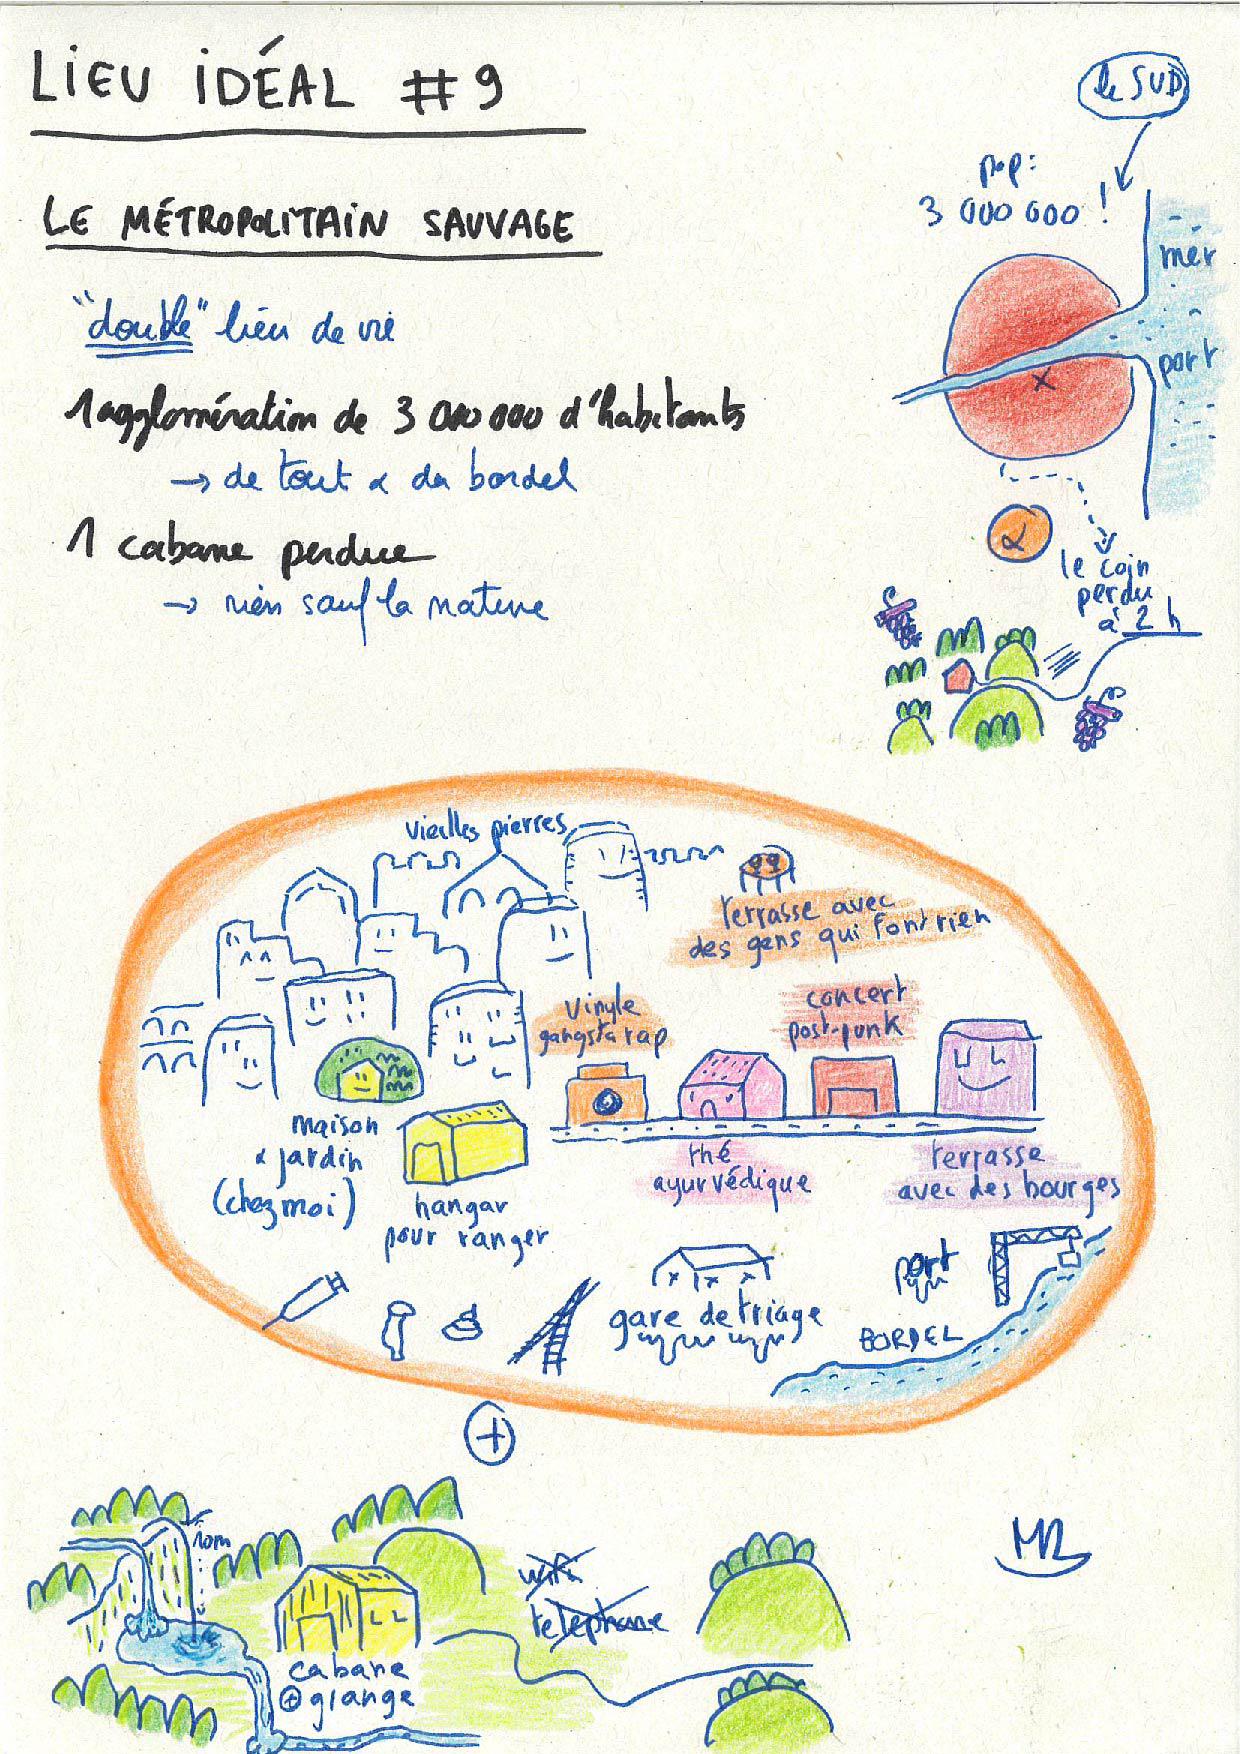 LiEU iDÉAL #9
LE MÉTROPOLiTAiN SAUVAGE
"double" lieu de vie
1 agglomération de 3 000 000 d'habitants
→ de tout & du bordel
1 cabane perdue
→ rien sauf la nature
le SUD
pop:
3 000 000 !
mer
port
x
&
le coin
perdu
à 2 h
vieilles pierres
terrasse avec
des gens qui font rien
vinyle
gangsta rap
concert
post-punk
maison
& jardin
(chez moi)
hangar
pour ranger
thé
ayurvédique
terrasse
avec des bourges
port
gare de triage
BORDEL
+
10m
wifi
telephone
cabane
+ grange
MR